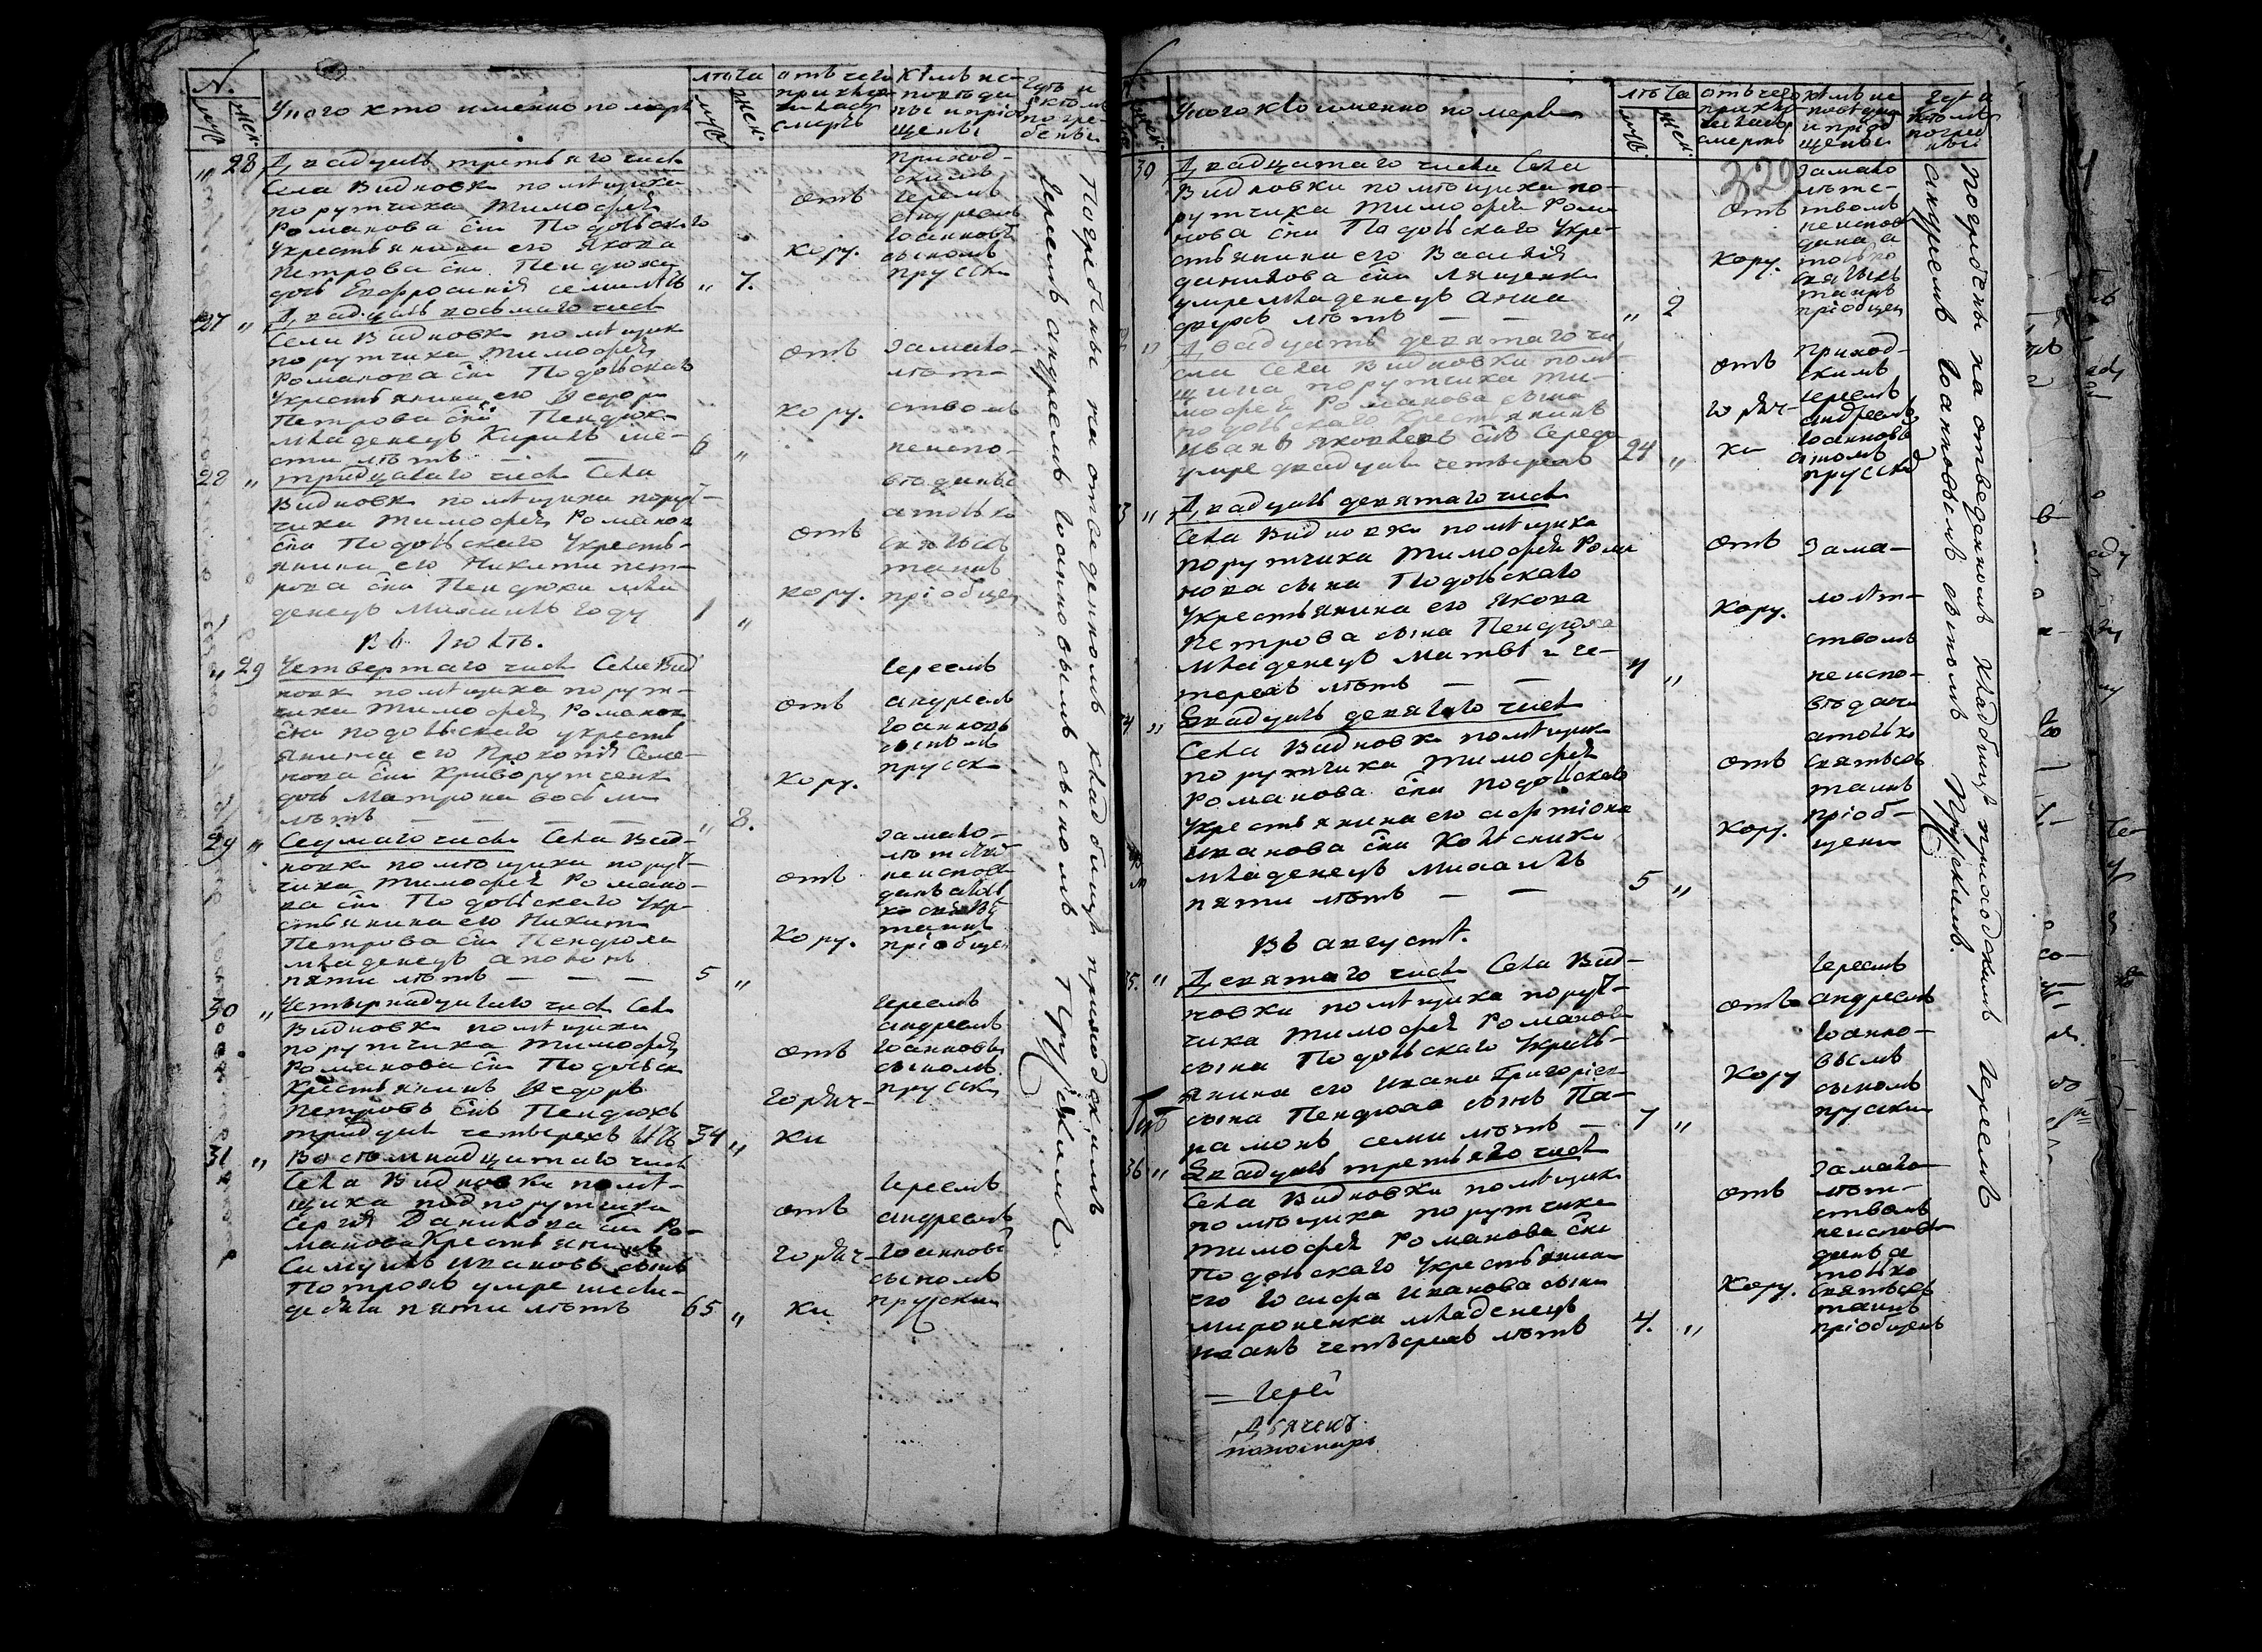 N.
муж.
жен.
У кого кто именно помере
лѣта
муж.
жен.
отъ чего
смерть
кѣмъ ис-
щены
Гдѣ и
кѣмъ
погре-
бены
28
Двадцать третьяго числ
Села Видновки помѣщика
порутчика Тимофея
Романова сна Подольскаго
у крестьянина его Якова
Петрова сна Пендюхи
дочь Евфросинія семи лѣтъ
„ 7.
отъ
кору.
приход-
скимъ
Іереемъ
Андреемъ
Іоанновы
сыномъ
Прусски
27 „
Двадцать восьмаго числ
Села Видновк помѣщик
порутчика Тимофея
Романова сна Подольскаго
у крестьянина его Федора
Петрова сна Пендюх
младенецъ Кирилъ ше-
сти лѣтъ
6 „
отъ
кору.
за мало-
лѣт-
ствомъ
неиспо-
28 „
тридцатаго числ Села
Видновк помѣщика порут-
чика Тимофея Романов
сна Подольскаго у кресть-
янина его Никити Пет-
рова сна Пендюхи мла
денецъ году
1 „
отъ
кору.
вѣданъ
а только
святыхъ
таинъ
пріобще
Въ Іюлѣ.
„ 29
Четвертаго числ Села Вид
новк помѣщика порут-
чика Тимофея Романов
сна Подольскаго у кресть
янина его Прокопія Семе-
нова сна Криворутченк
дочь Матрона восьми
лѣтъ
„ 8.
отъ
кору.
Іереемъ
Андреемъ
Іоанновы
сыномъ
Прусск
29 „
Седмаго числ Села Вид-
новк помѣщика порут-
чика Тимофея Романо-
ва сна Подольскаго у кре-
стьянина его Никити
Петрова сна Пендюхи
младенецъ
пяти лѣтъ
5 „
отъ
кору.
за мало-
лѣтств
неиспов
данъ а толь
ко святы
таинъ
пріобще
30 „
Четырнадцатаго числ Села
Видновк помѣщика
порутчика Тимофея
Романова сна Подольск
Крестьянинъ Федоръ
Петровъ снъ Пендюхъ
тридцати четырехъ лѣтъ
34 „
отъ
горяч-
ки
Іереемъ
Андреемъ
Іоанновы
сыномъ
Прусски
31 „
Восемнадцатаго числ
Села Видновки помѣ-
щика подпорутчика
Сергѣя Данилова сна Ро-
манова Крестьянинъ
Ивановъ сынъ
умре шесть-
десятъ пяти лѣтъ
65 „
отъ
горяч-
ки
Іереемъ
Андреемъ
Іоанновы
сыномъ
Прусски
Погребены на отведенномъ кладбищѣ приходскимъ
Іереемъ Андреемъ Іоанновымъ сыномъ Прусскимъ
У кого кто именно померъ
лѣта
муж.
жен.
отъ чего
смерть
кѣмъ ис
повѣдан
и пріоб
щены
Гдѣ и
кѣмъ
погребе
ны
329
30
Двадцатаго числа Села
Видновки помѣщика по-
рутчика Тимофея Рома
нова сна Подольскаго у кре-
стьянина его Василія
Данилова сна Лященки
умре младенецъ Анна
двухъ лѣтъ
„ 2
отъ
кору.
за мало
лѣтс-
твомъ
неиспов
дана а
только
святыхъ
таинъ
пріобщен
„
Двадцать девятаго чи
сла Села Видновки помѣ-
щика порутчика Ти-
мофея Романова сына
Подольскаго Крестьянинъ
Иванъ Яковлевъ снъ Середа
умре двадцати четырехъ
24 „
отъ
горяч-
ки
приход-
скимъ
Іереемъ
Андреемъ
Іоанновы
сыномъ
Прусски
3 „
Двадцать девятаго числ
Села Видновки помѣщика
порутчика Тимофея Рома
нова сына Подольскаго
у крестьянина его Якова
Петрова сына Пендюха
младенецъ Матвѣй че-
тырехъ лѣтъ
4 „
отъ
кору.
за ма-
лолѣт-
ствомъ
неиспо-
вѣдан
4 „
Двадцать девятаго числ
Села Видновк помѣщик
порутчика Тимофея
Романова сна Подольскаго
у крестьянина его
Иванова сна
младенецъ Михаилъ
пяти лѣтъ
5 „
отъ
кору.
а только
святыхъ
таинъ
пріоб-
щени
Въ август.
35. „
Девятаго числ Села Вид-
новки помѣщика порут-
чика Тимофея Романова
сына Подольскаго у кресть-
янина его Ивана Григоріев
сына Пендюха сынъ Па-
рамонъ семи лѣтъ
7 „
отъ
кору
Іереемъ
Андреемъ
Іоанно-
вымъ
сыномъ
Прусски
36 „
Двадцать третьяго числ
Села Видновки помѣщик
помѣщика порутчика
Тимофея Романова сна
Подольскаго у крестьянина
его Іосифа Иванова сына
Мироненка младенецъ
Иванъ четырехъ лѣтъ
4. „
отъ
кору.
за мало
лѣт-
ствомъ
неиспов
данъ а
только
святыхъ
таинъ
пріобщенъ
Погребены на отведенномъ кладбищѣ приходскимъ Іереемъ
Андреемъ Іоанновымъ сыномъ Прусскимъ.
Іерей
Дьячекъ
пономарь